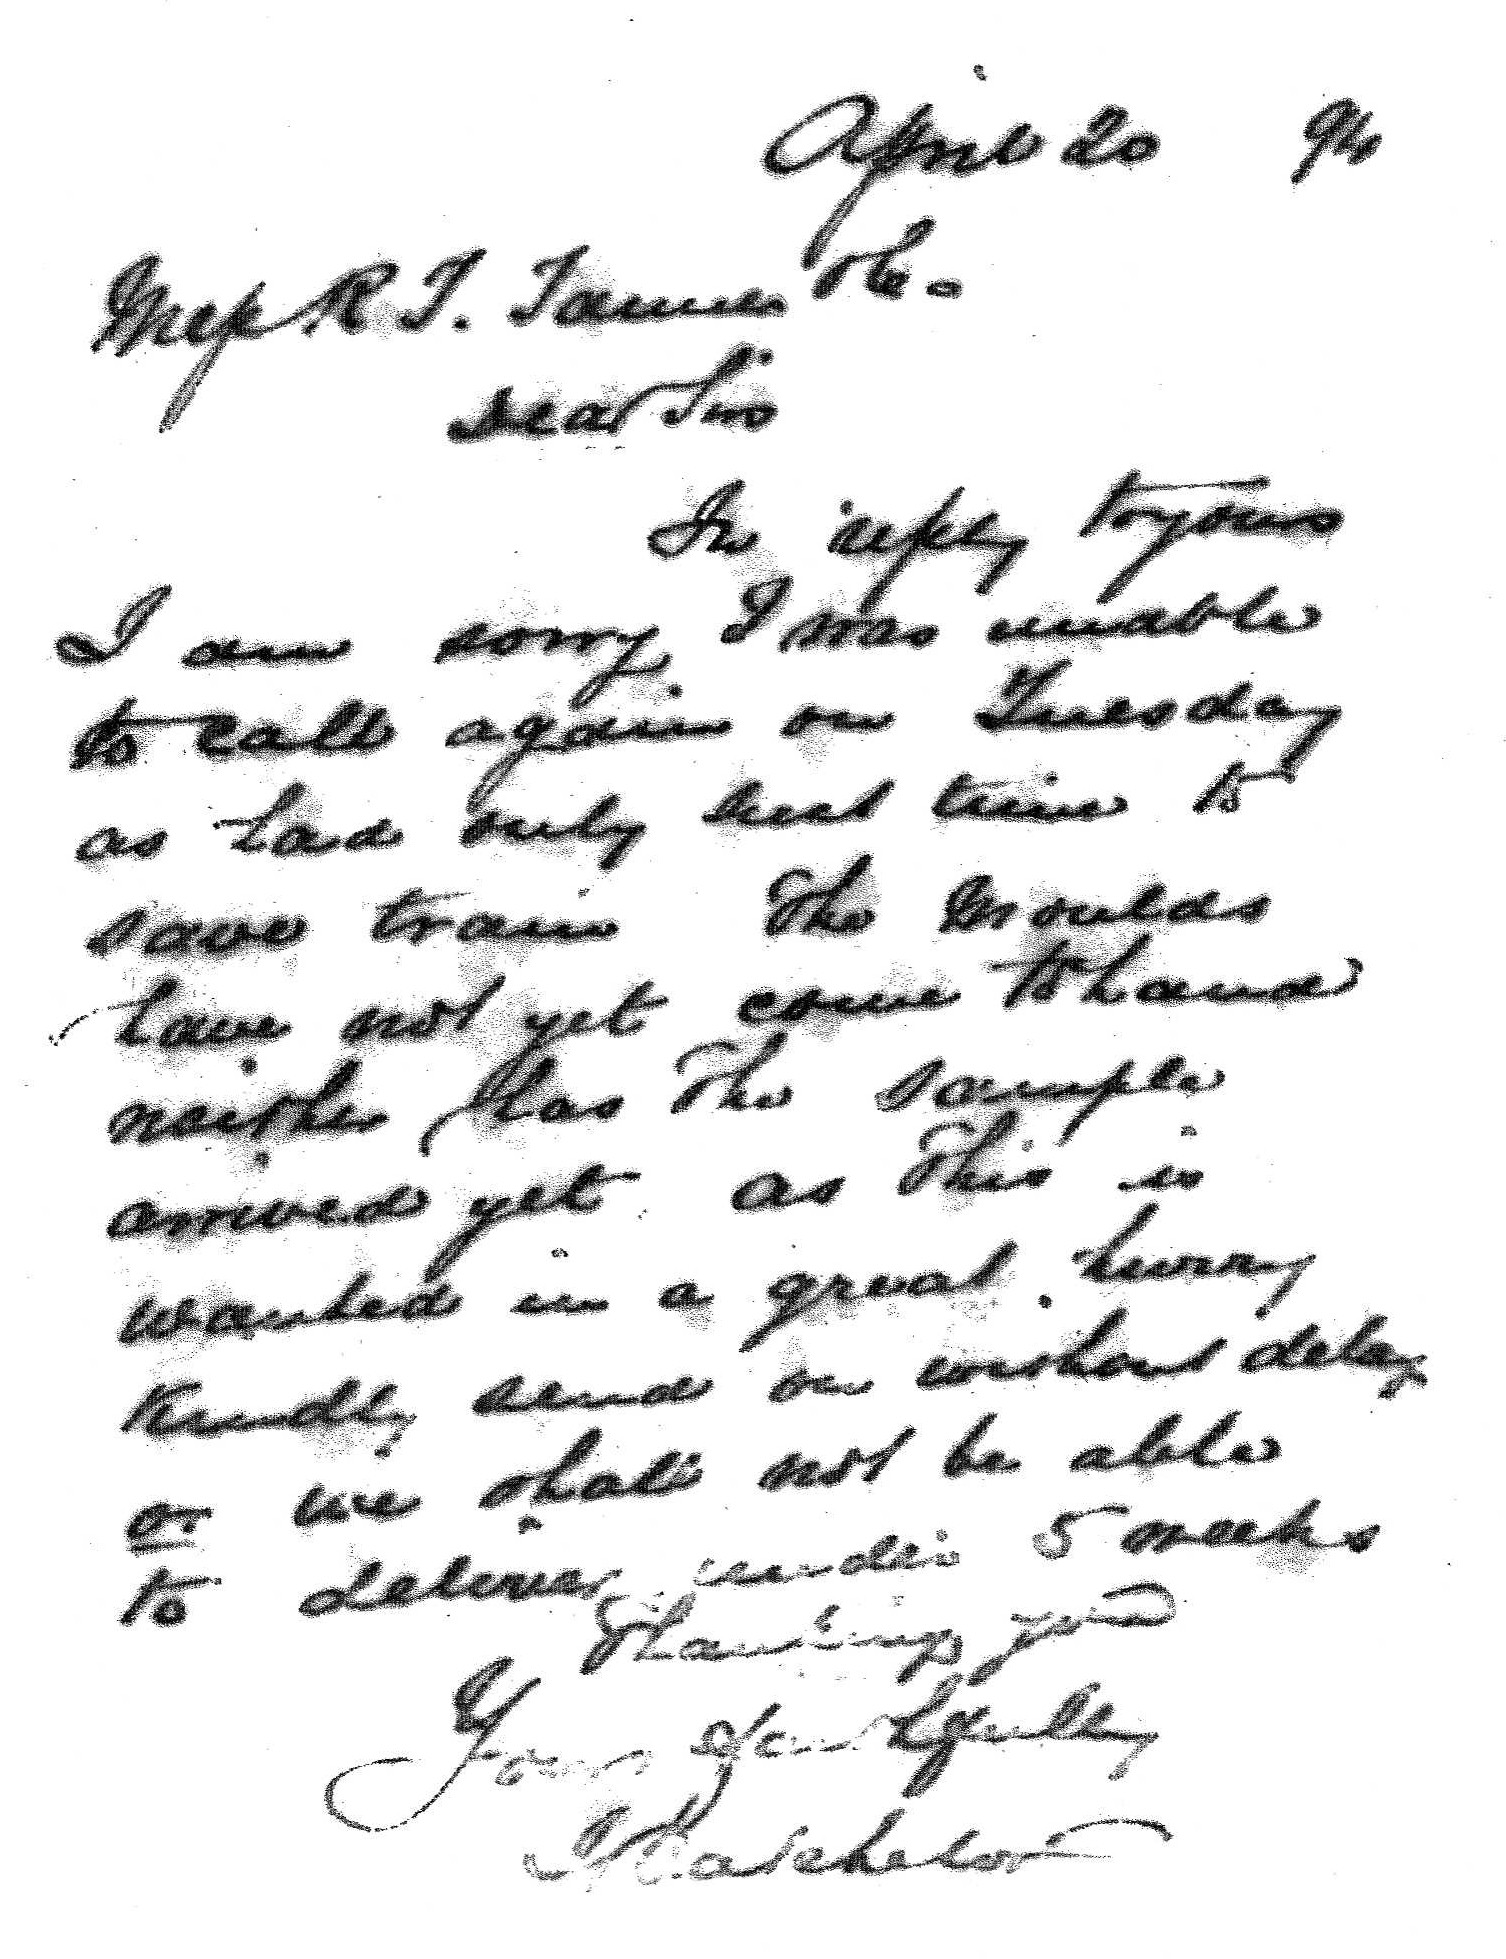 April 20 94
Mess R T. Tanner &Co.
Dear Sirs
In reply to yours
I am sorry I was unable
to call again on Tuesday
as had only best time to
save train The Moulds
have not yet come to hand
neither has the sample
arrived yet as this is
wanted in a great hurry
kindly send on without delay
or we shall not be able
to deliver under 5 weeks
Thanking you
Yours faithfully
Batchelor